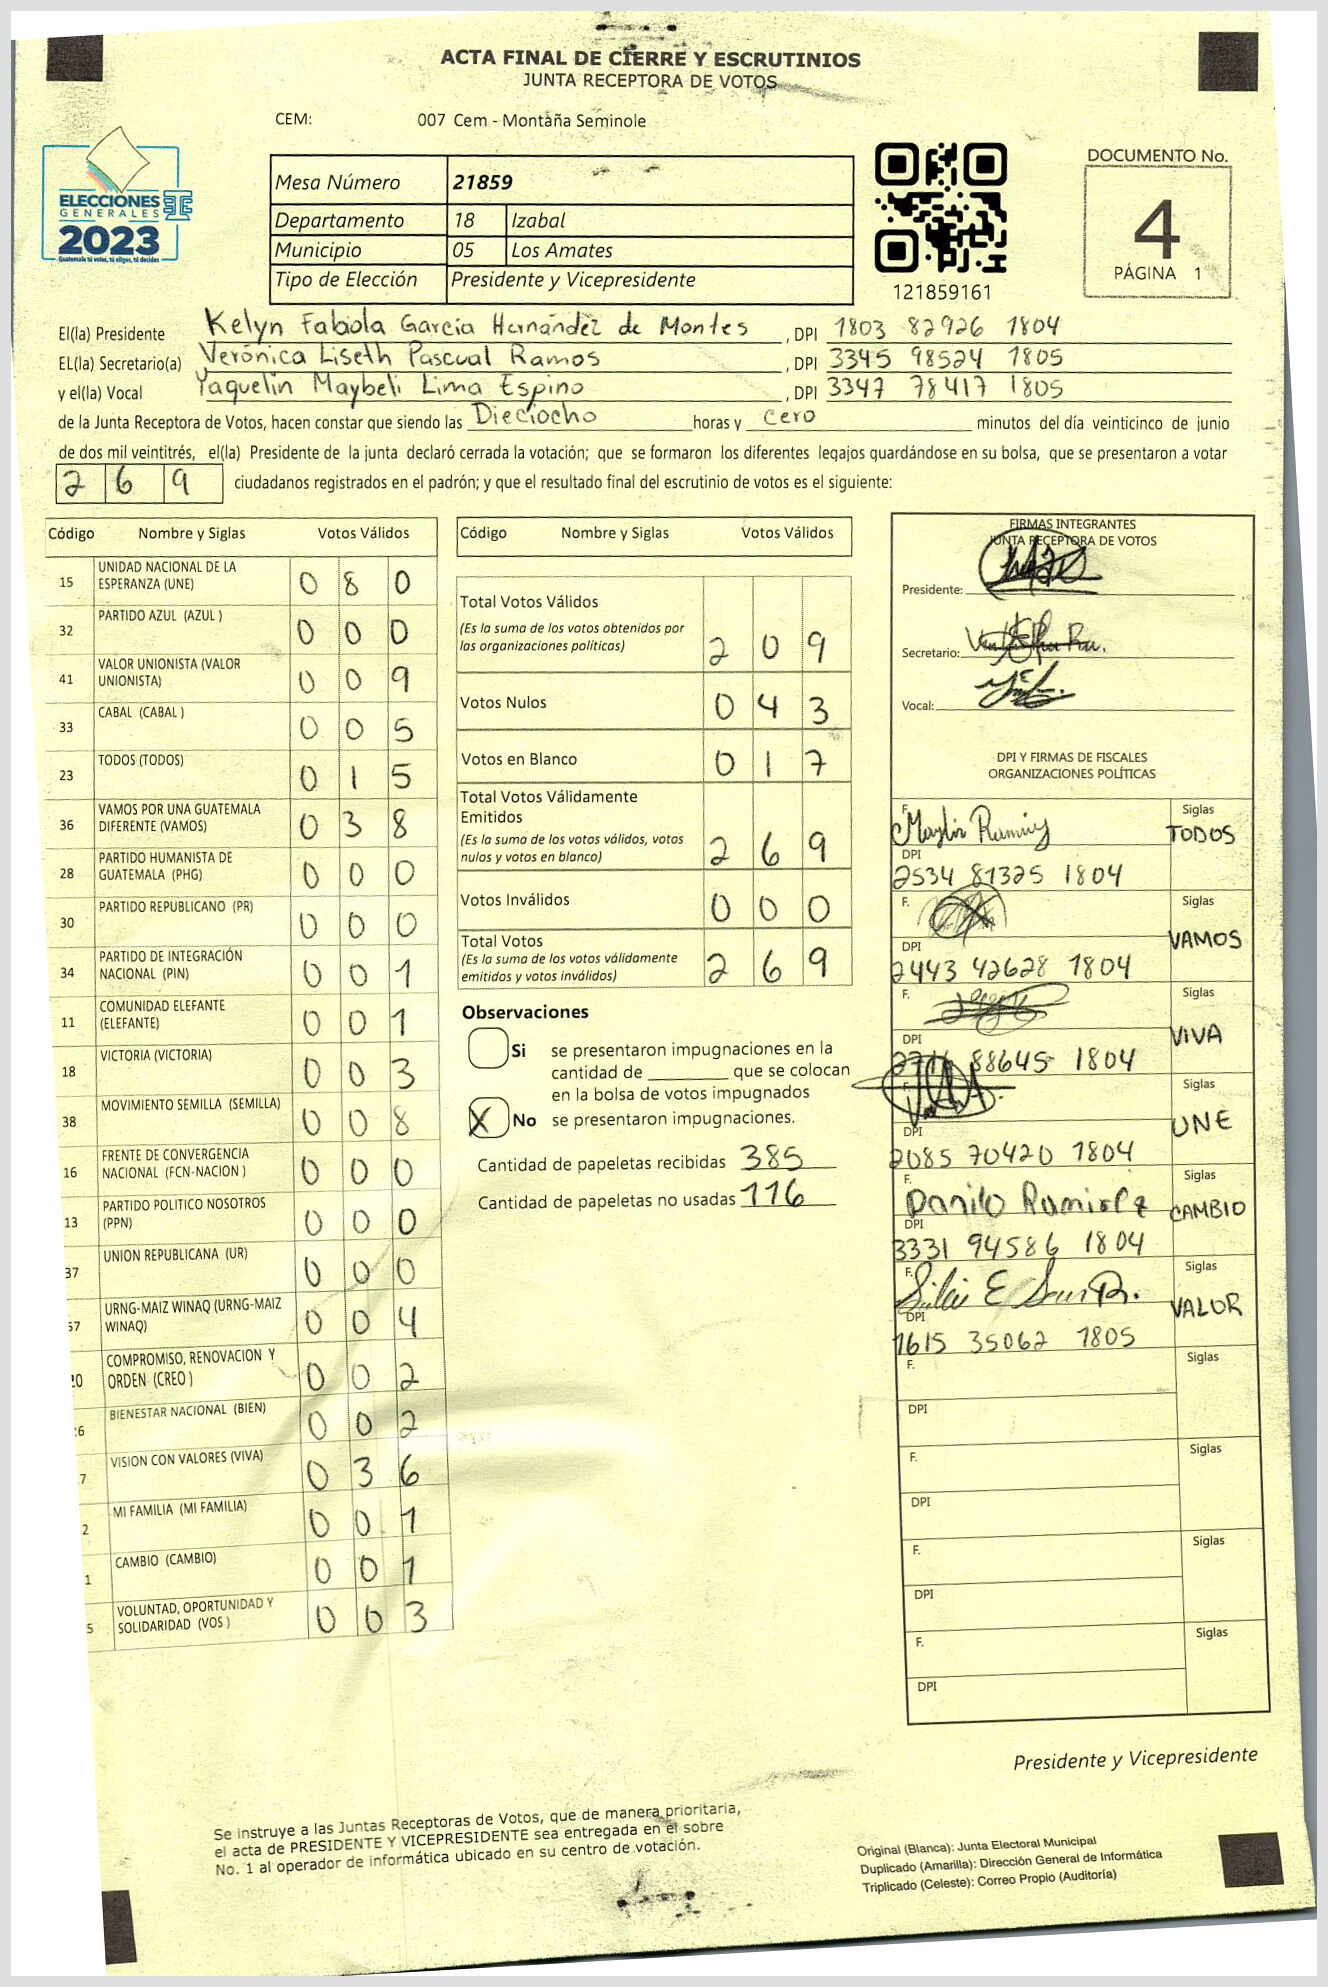 ACTA FINAL DE CIERRE Y ESCRUTINIOS
JUNTA RECEPTORA DE VOTOS
CEM: 007 Cem - Montaña Seminole
ELECCIONES
GENERALES
2023
Guatemala tú votas, tú eliges, tú decides
Mesa Número 21859
Departamento 18 Izabal
Municipio 05 Los Amates
Tipo de Elección Presidente y Vicepresidente
121859161
DOCUMENTO No.
4
PÁGINA 1
El(la) Presidente Kelyn Fabiola García Hernández de Montes, DPI 1803 82926 1804
EL(la) Secretario(a) Verónica Liseth Pascual Ramos, DPI 3345 98524 1805
y el(la) Vocal Yaquelin Maybeli Lima Espino, DPI 3347 78417 1805
de la Junta Receptora de Votos, hacen constar que siendo las Dieciocho horas y cero minutos del día veinticinco de junio
de dos mil veintitrés, el(la) Presidente de la junta declaró cerrada la votación; que se formaron los diferentes legajos guardándose en su bolsa, que se presentaron a votar
269 ciudadanos registrados en el padrón; y que el resultado final del escrutinio de votos es el siguiente:
Código Nombre y Siglas Votos Válidos
15 UNIDAD NACIONAL DE LA ESPERANZA (UNE) 0 8 0
32 PARTIDO AZUL (AZUL ) 0 0 0
41 VALOR UNIONISTA (VALOR UNIONISTA) 0 0 9
33 CABAL (CABAL ) 0 0 5
23 TODOS (TODOS) 0 1 5
36 VAMOS POR UNA GUATEMALA DIFERENTE (VAMOS) 0 3 8
28 PARTIDO HUMANISTA DE GUATEMALA (PHG) 0 0 0
30 PARTIDO REPUBLICANO (PR) 0 0 0
34 PARTIDO DE INTEGRACIÓN NACIONAL (PIN) 0 0 1
11 COMUNIDAD ELEFANTE (ELEFANTE) 0 0 1
18 VICTORIA (VICTORIA) 0 0 3
38 MOVIMIENTO SEMILLA (SEMILLA) 0 0 8
16 FRENTE DE CONVERGENCIA NACIONAL (FCN-NACION ) 0 0 0
13 PARTIDO POLITICO NOSOTROS (PPN) 0 0 0
37 UNION REPUBLICANA (UR) 0 0 0
57 URNG-MAIZ WINAQ (URNG-MAIZ WINAQ) 0 0 4
20 COMPROMISO, RENOVACION Y ORDEN (CREO ) 0 0 2
26 BIENESTAR NACIONAL (BIEN) 0 0 2
7 VISION CON VALORES (VIVA) 0 3 6
2 MI FAMILIA (MI FAMILIA) 0 0 1
1 CAMBIO (CAMBIO) 0 0 1
5 VOLUNTAD, OPORTUNIDAD Y SOLIDARIDAD (VOS ) 0 0 3
Código Nombre y Siglas Votos Válidos
Total Votos Válidos
(Es la suma de los votos obtenidos por
las organizaciones políticas) 2 0 9
Votos Nulos 0 4 3
Votos en Blanco 0 1 7
Total Votos Válidamente
Emitidos
(Es la suma de los votos válidos, votos
nulos y votos en blanco) 2 6 9
Votos Inválidos 0 0 0
Total Votos
(Es la suma de los votos válidamente
emitidos y votos inválidos) 2 6 9
Observaciones
Si se presentaron impugnaciones en la
cantidad de ________ que se colocan
en la bolsa de votos impugnados
X No se presentaron impugnaciones.
Cantidad de papeletas recibidas 385
Cantidad de papeletas no usadas 116
FIRMAS INTEGRANTES
JUNTA RECEPTORA DE VOTOS
Presidente:
Secretario:
Vocal:
DPI Y FIRMAS DE FISCALES
ORGANIZACIONES POLÍTICAS
F. Siglas
TODOS
DPI
2534 81325 1804
F. Siglas
VAMOS
DPI
2443 42628 1804
F. Siglas
VIVA
DPI
88645 1804
F. Siglas
UNE
DPI
2085 70420 1804
F. Danilo Ramirez Siglas
CAMBIO
DPI
3331 94586 1804
F. Siglas
VALOR
DPI
1615 35062 1805
F. Siglas
DPI
F. Siglas
DPI
F. Siglas
DPI
F. Siglas
DPI
Presidente y Vicepresidente
Se instruye a las Juntas Receptoras de Votos, que de manera prioritaria,
el acta de PRESIDENTE Y VICEPRESIDENTE sea entregada en el sobre
No. 1 al operador de informática ubicado en su centro de votación.
Original (Blanca): Junta Electoral Municipal
Duplicado (Amarilla): Dirección General de Informática
Triplicado (Celeste): Correo Propio (Auditoría)